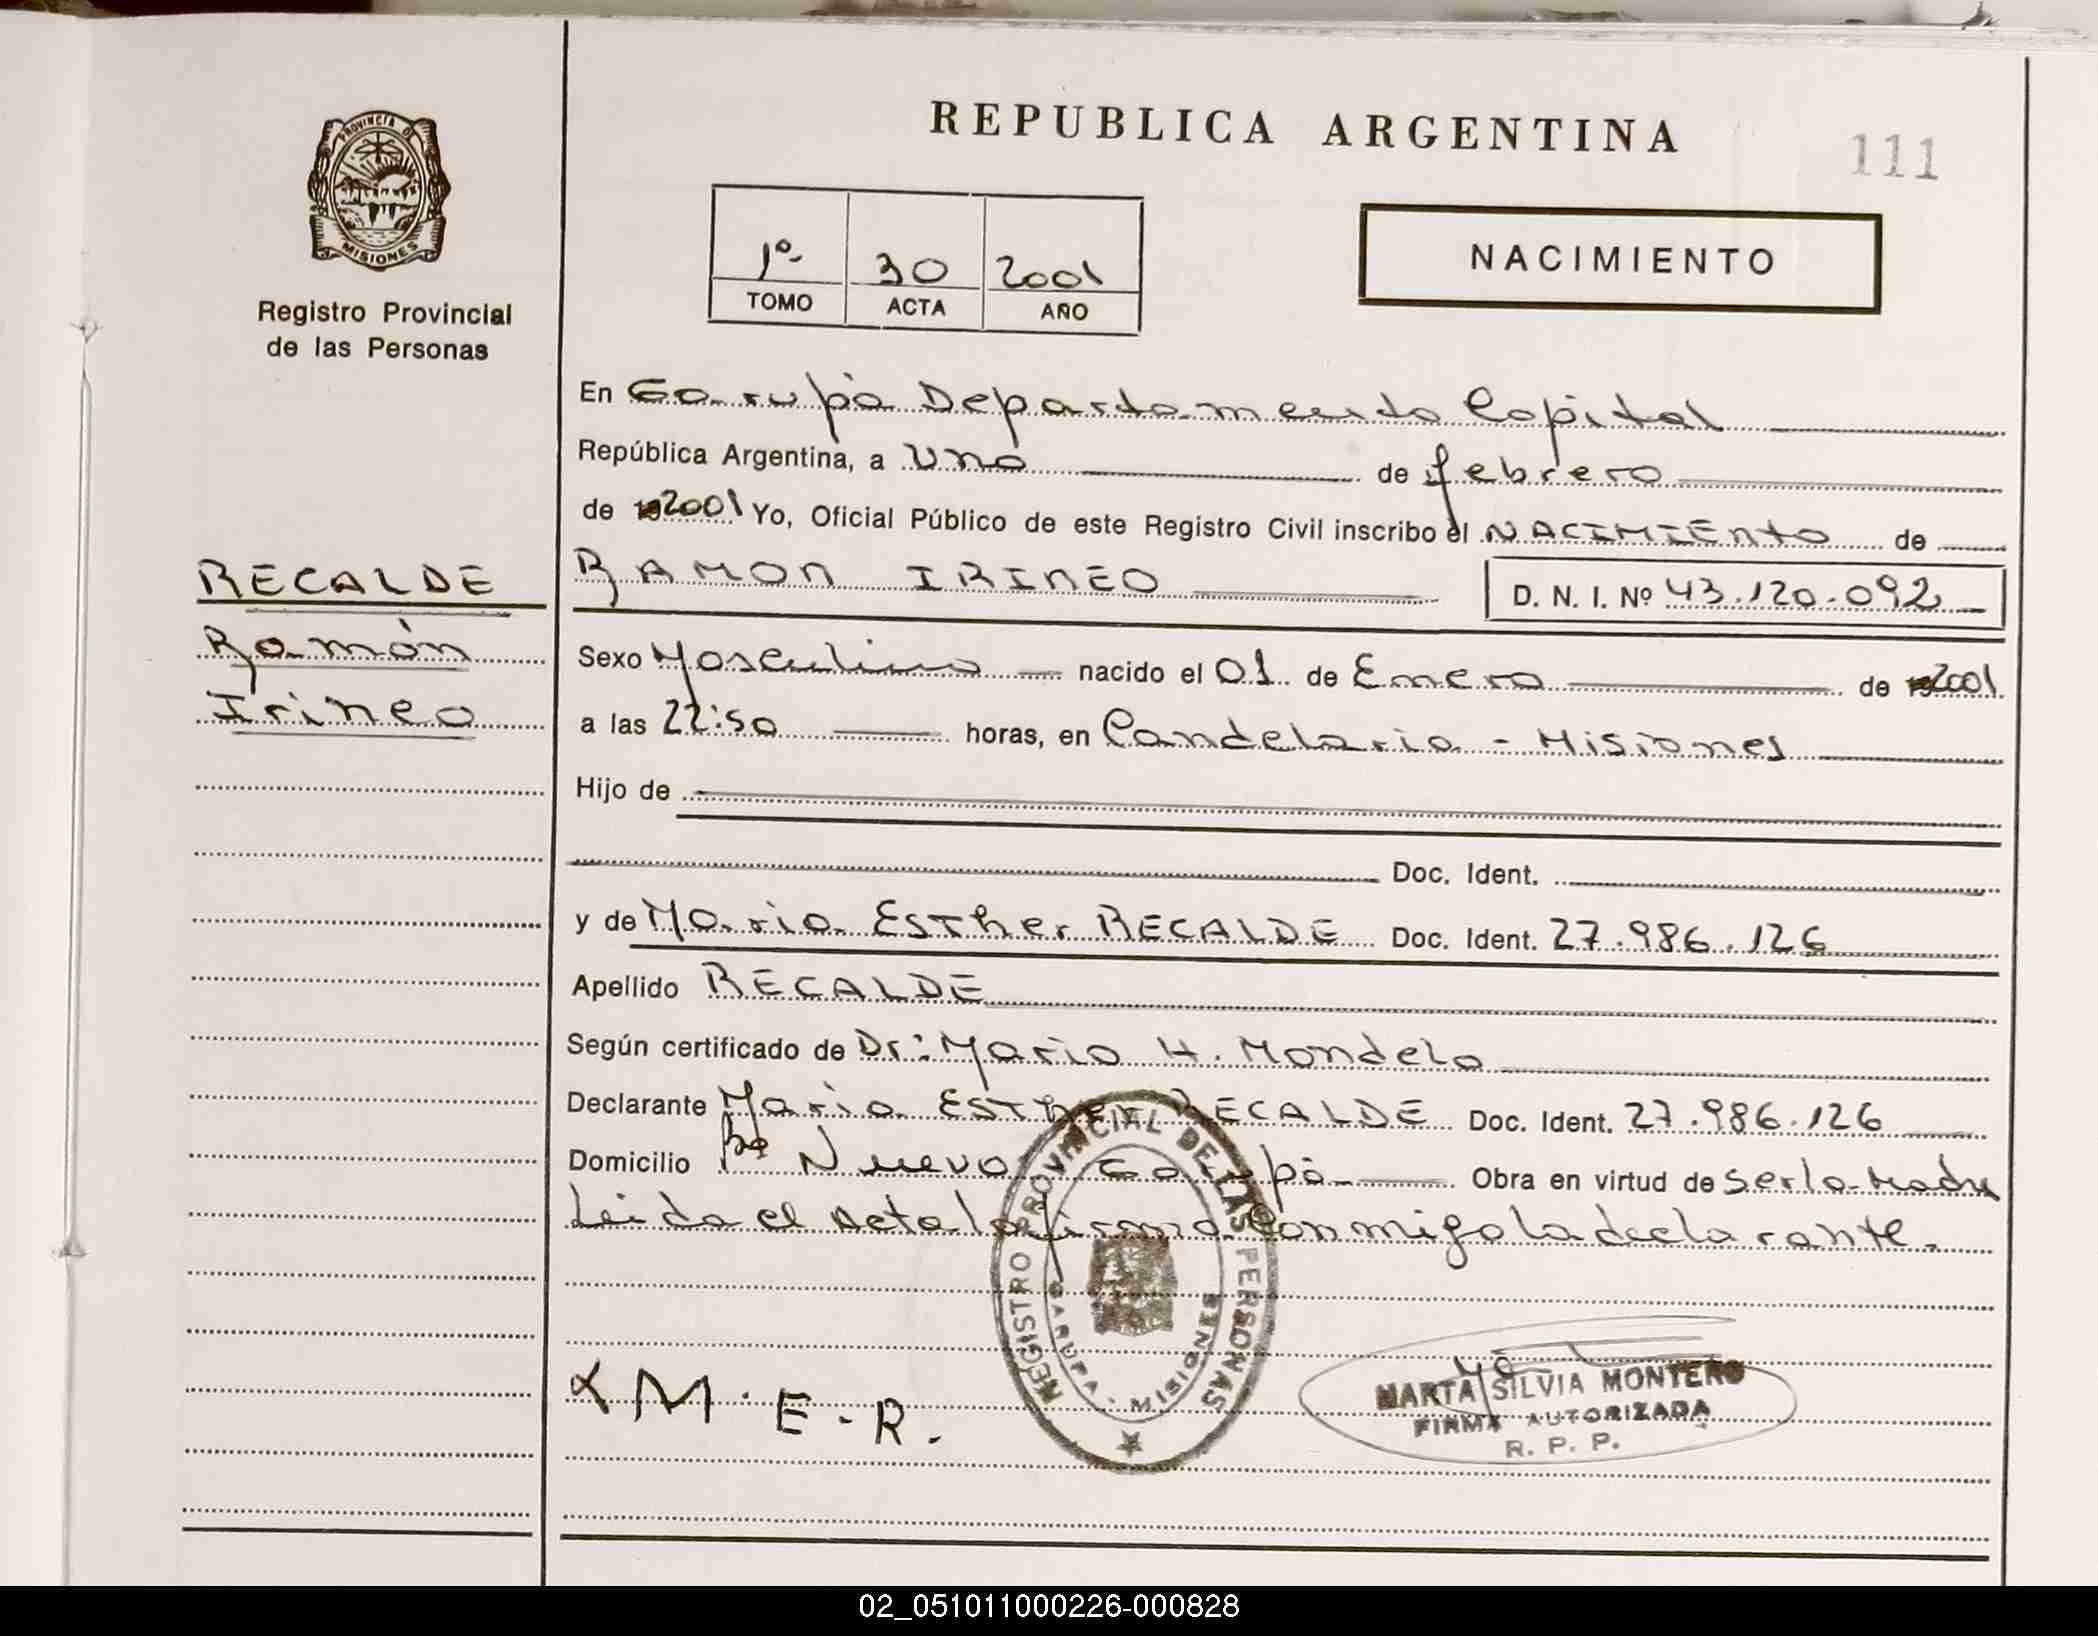 REPUBLICA ARGENTINA
111
PROVINCIA DE
MISIONES
Registro Provincial
de las Personas
1º 30 2001
TOMO ACTA AÑO
NACIMIENTO
En Garupá Departamento Capital
República Argentina, a Uno de febrero
de 2001 Yo, Oficial Público de este Registro Civil inscribo el NACIMIENTO de
RECALDE
Ramón
Irineo
RAMON IRINEO D. N. I. Nº 43.120.092
Sexo Masculino nacido el 01 de Enero de 2001
a las 22:50 horas, en Candelaria - Misiones
Hijo de
Doc. Ident.
y de Maria Esther RECALDE Doc. Ident. 27.986.126
Apellido RECALDE
Según certificado de Dr: Mario H. Mondelo
Declarante Maria Esther RECALDE Doc. Ident. 27.986.126
Domicilio Bº Nuevo Garupá Obra en virtud de ser la Madre
Leida el Acta la firma conmigo la declarante.
REGISTRO PROVINCIAL DE LAS PERSONAS
GARUPA - MISIONES
M. E. R.
MARTA SILVIA MONTERO
FIRMA AUTORIZADA
R. P. P.
02_051011000226-000828